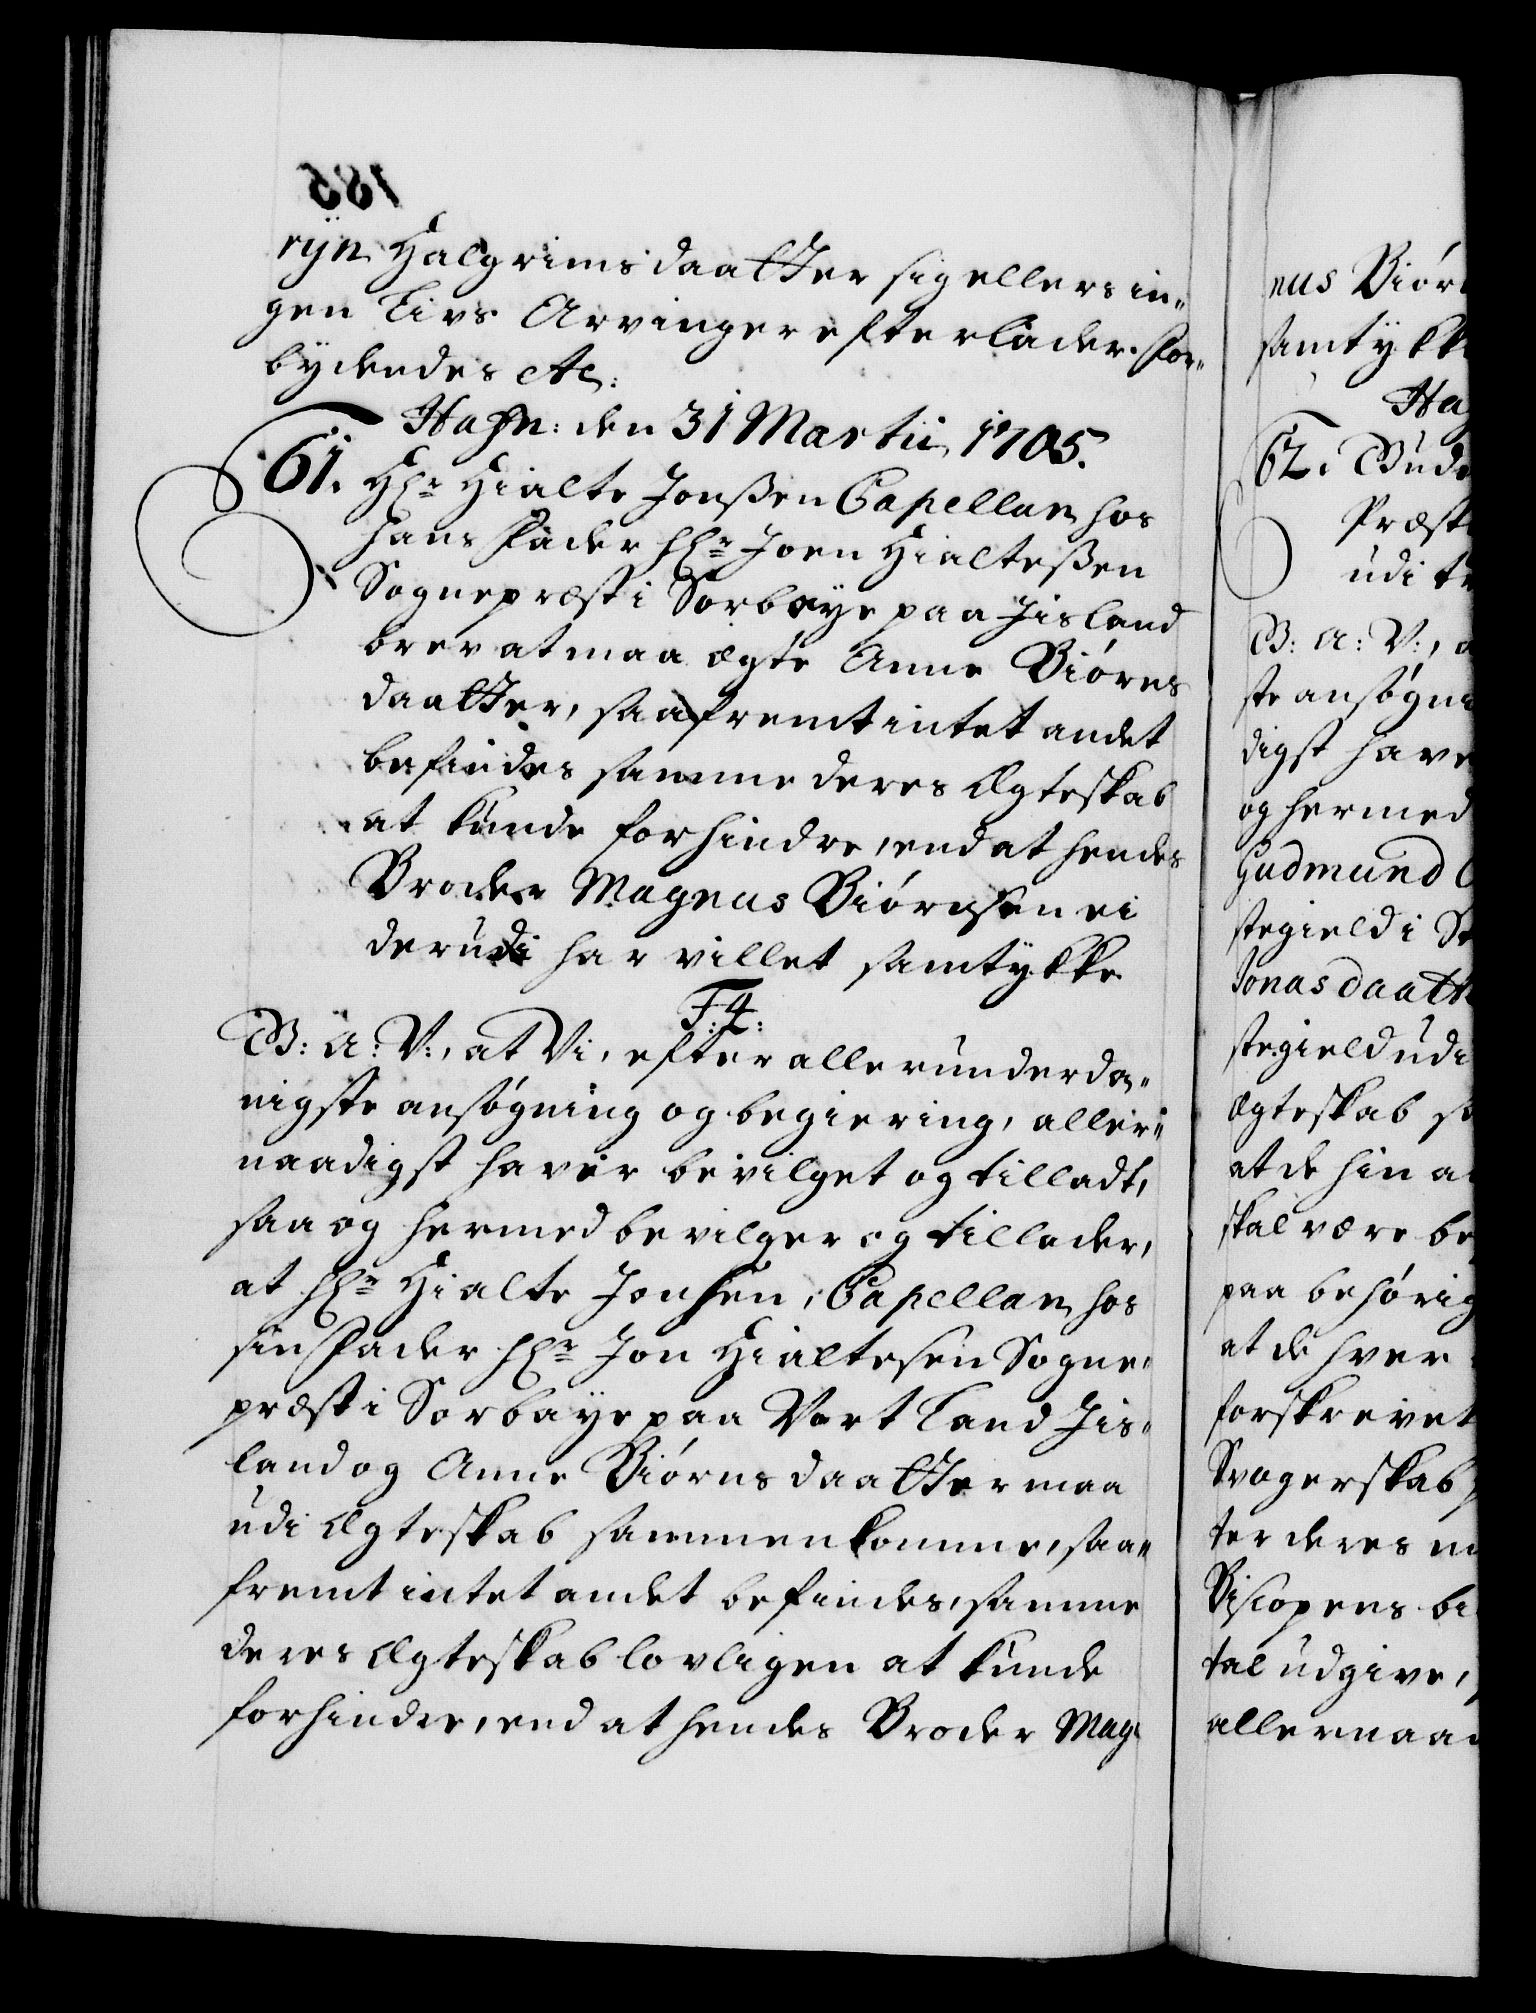 ryn Halgrims daatter sig ellers in„
gen Livs Arvinger efterlader. For„
bydendes etc:
Hafn: den 31 Martii 1705.
61. Hr Hialte Jonssen Capellan hos
hans Fader Hr Joen Hialtessen
Sognepræst i Sorbøye paa Jisland
brev at maa ægte Anne Biørns
daatter, saafremt intet andet
befindes samme deres Ægteskab
at kunde forhindre, end at hendes
Broder Magnus Biørnsen ei
derudi har villet samtykke
F: 4:
G: A: V:, at Vi, efter allerunderda„
nigste ansøgning og begiering, aller„
naadigst haver bevilget og tilladt,
saa og hermed bevilger og tillader,
at Hr Hialte Jonsen, Capellan hos
sin Fader Hr Jon Hialtesen Sogne„
præst i Sorbøye paa Vort Land Jis„
land og Anne Biørns daatter maa
udi Ægteskab sammenkomme, saa„
fremt intet andet befindes, samme
deres Ægteskab lovligen at kunde
forhindre, end at hendes Broder Mag„
nus Biør
samtykk
Ha
62. Gud
Præst
udi
G: A: V:,
ste ansøgni
digst have
og hermed
Gudmund
stegield i
Jonasdaatt
stegield udi
Ægteskab
at de hin a
skal være be
paa behørig
at de hver
forskrevet
Svogerskab
ter deres
Biscopens
tal udgive,
allernaad